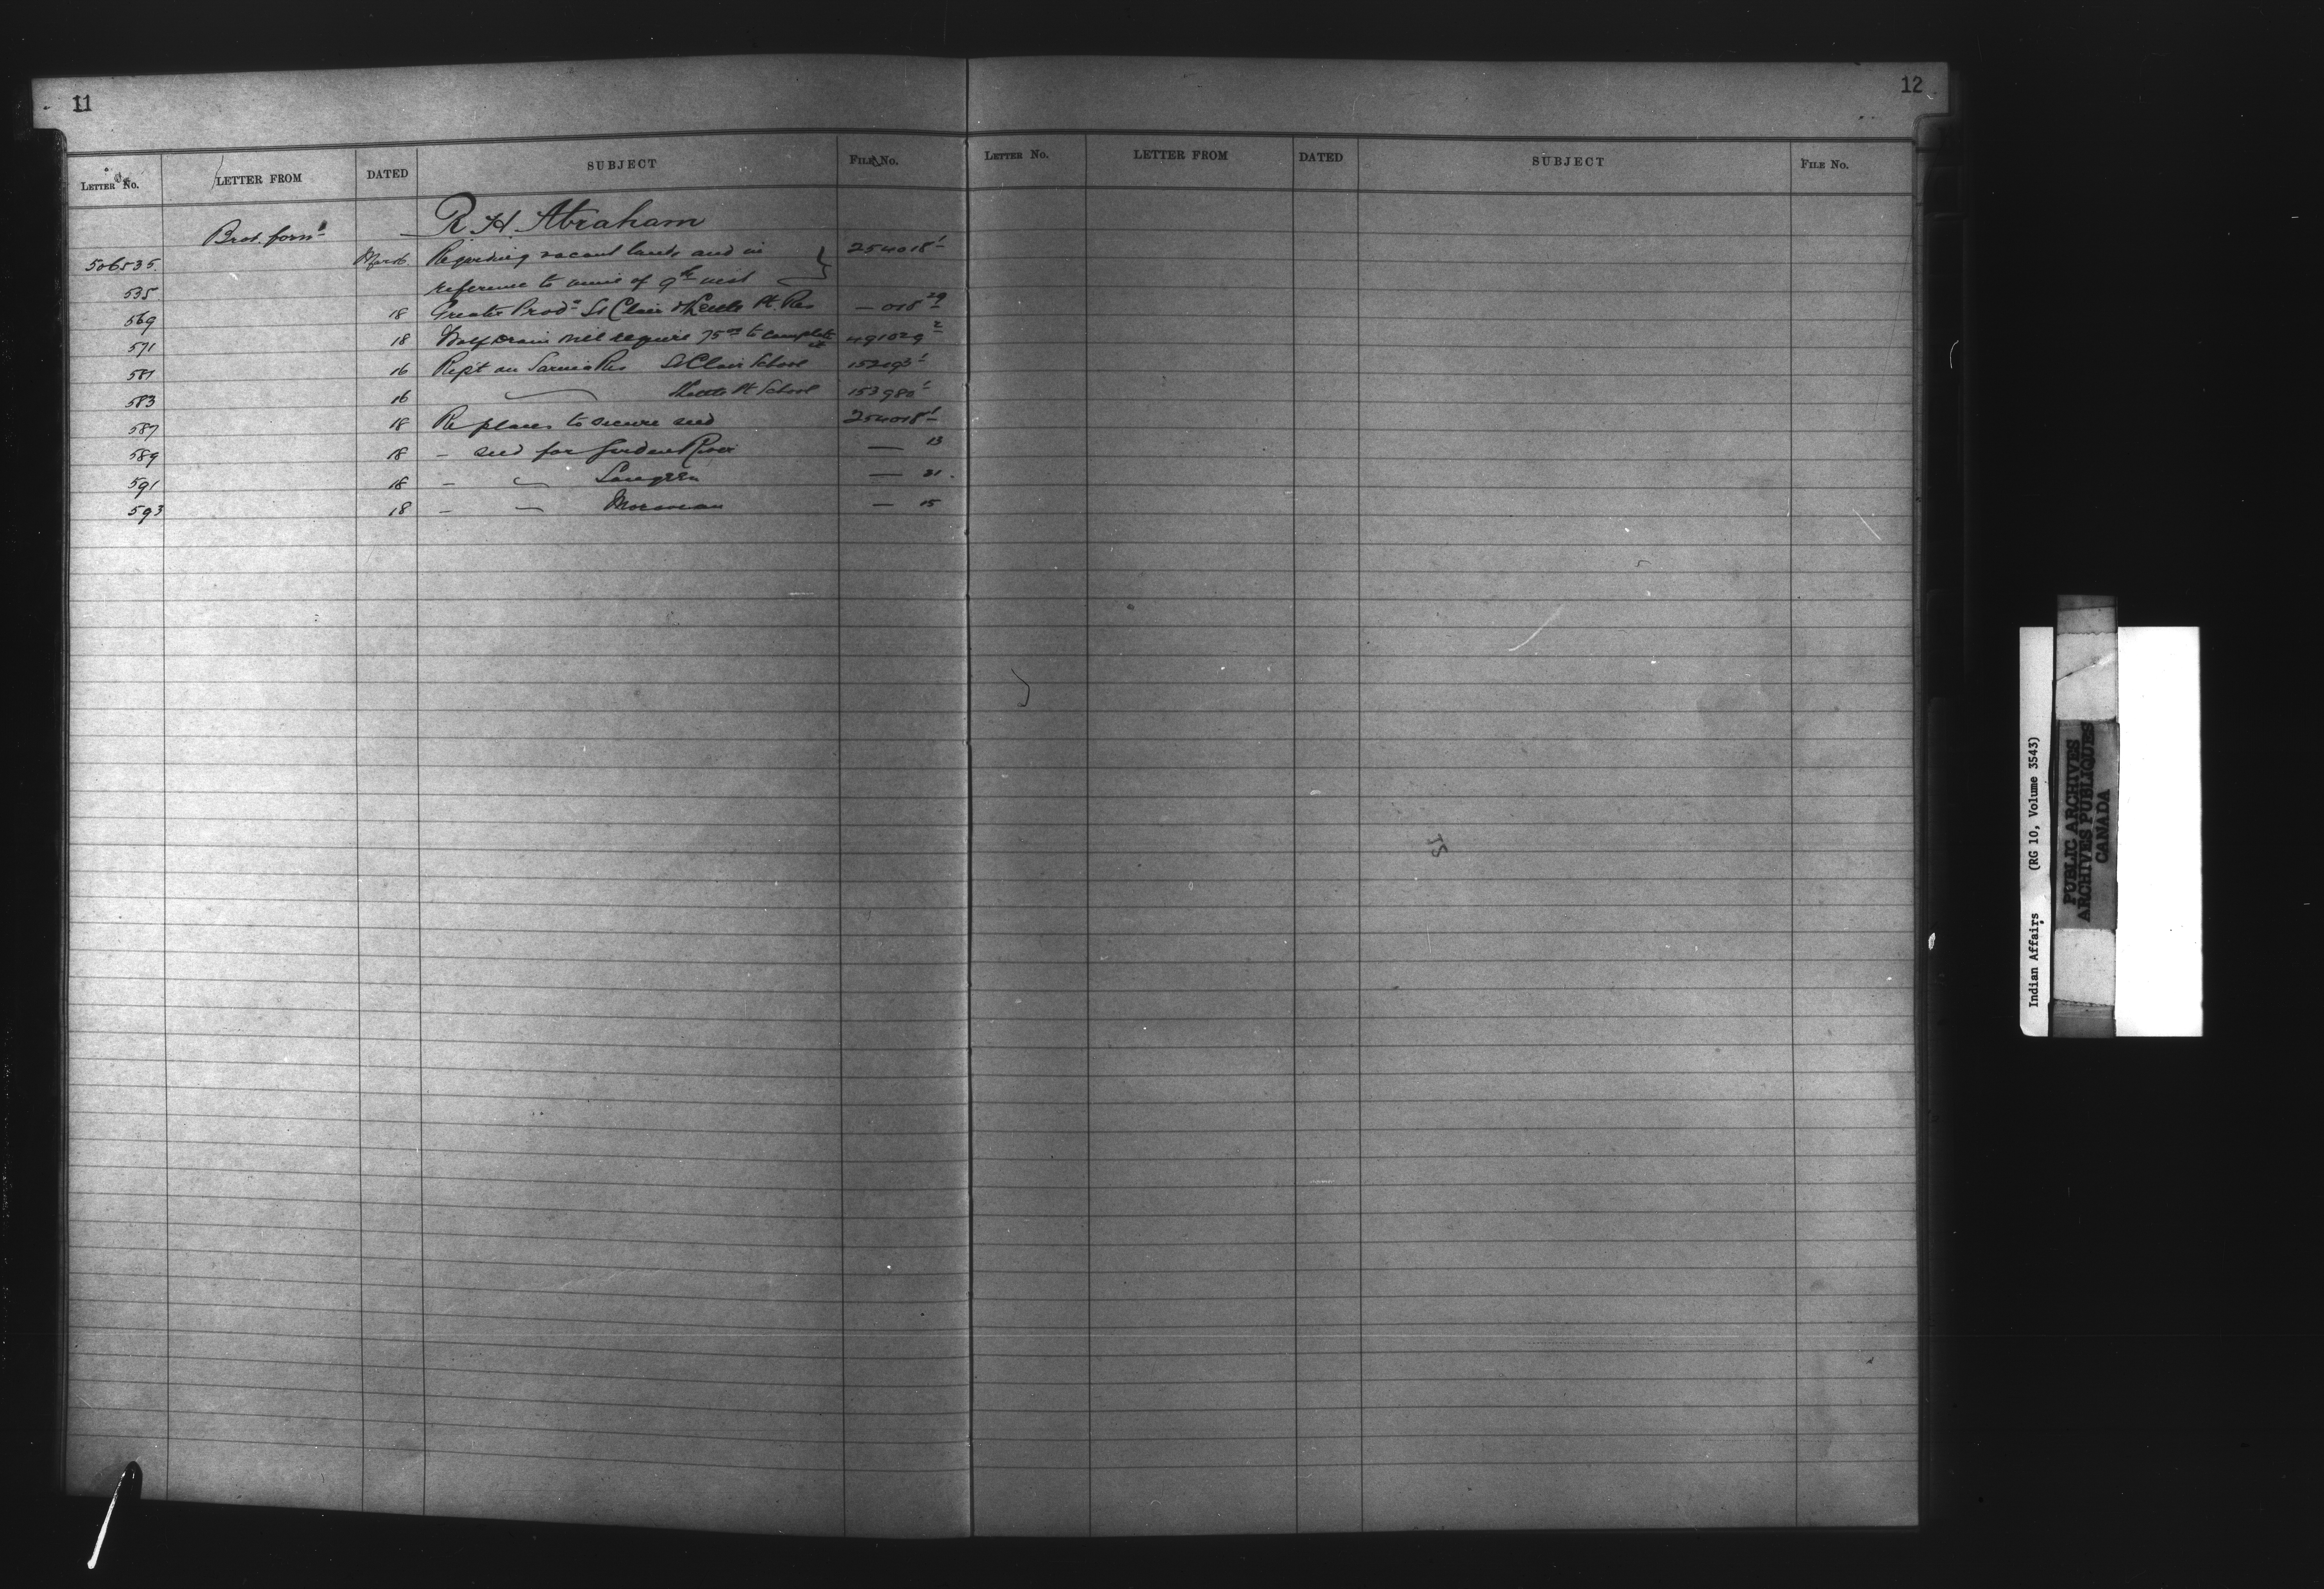 11
12
LETTER No. LETTER FROM DATED SUBJECT FILE No.
LETTER No. LETTER FROM DATED SUBJECT FILE No.
Brot. forwd R. H. Abraham
506535. Mar 16 Regarding vacant lands and in 254018-1
535 reference to of 9th inst
569 18 Greater Prodn St Clair & Kettle Pt. Res — 018-29
571 18 Drain will require 75.00 to complete it 491029-2
581 16 Rept on Sarnia Res St Clair School 1
583 16 Kettle Pt School 153980-1
587 18 Re places to secure seed 254018-1
589 18 – seed for Garden River — 13
591 18 – — Saugeen — 21
593 18 – — Moravian — 15
Indian Affairs (RG 10, Volume 3543)
PUBLIC ARCHIVES
ARCHIVES PUBLIQUES
CANADA